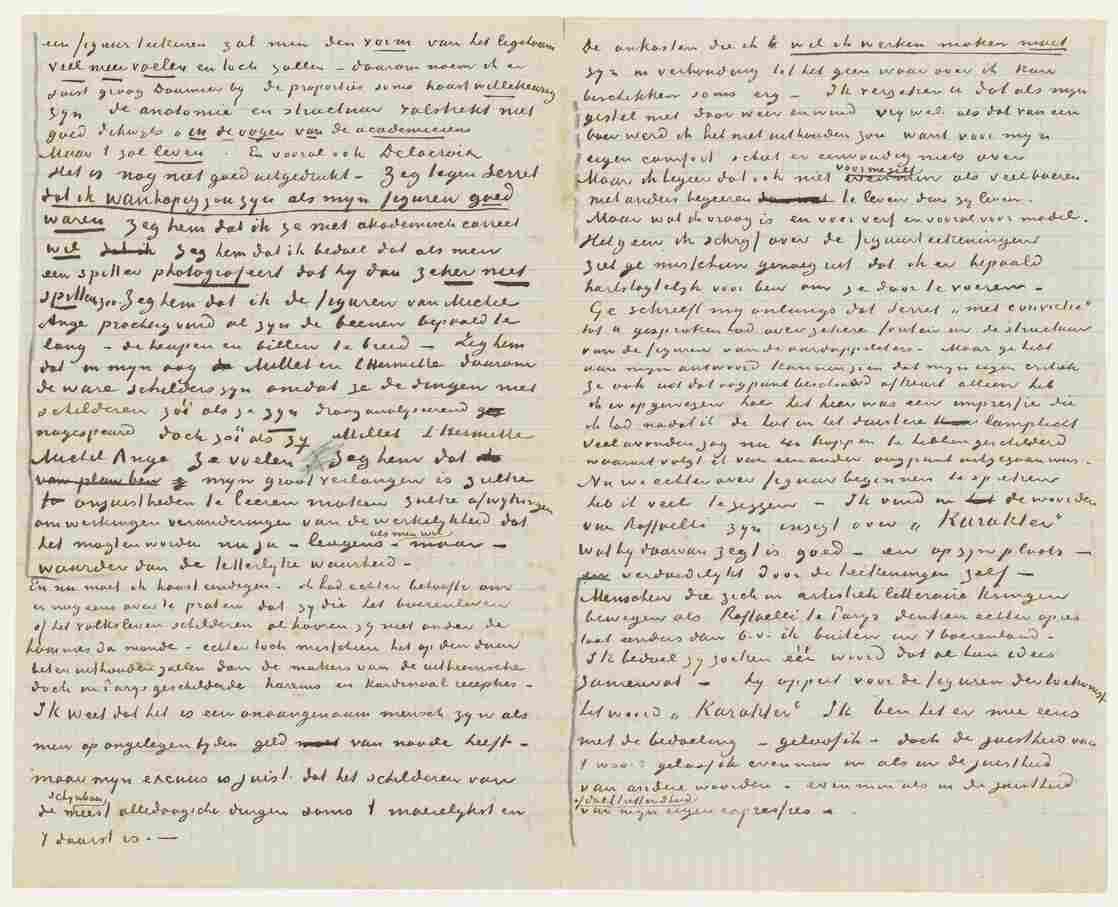 een figuur teekenen zal men den vorm van het ligchaam
veel meer voelen en toch zullen – daarom noem ik er
juist graag Daumier by de proporties soms haast willekeurig
zyn de anatomie en structuur volstrekt niet
goed dikwyls in de oogen van de academiciens
Maar t zal leven. En vooral ook Delacroix
Het is nog niet goed uitgedrukt – Zeg tegen Serret
dat ik wanhopig zou zyn als myn figuren goed
waren Zeg hem dat ik ze niet akademisch correct
wil dat ik Zeg hem dat ik bedoel dat als men
een spitter photografeert dat hy dan zeker niet
spitten zou. Zeg hem dat ik de figuren van Michel
Ange prachtig vind al zyn de beenen bepaald te
lang – de heupen en billen te breed – Zeg hem
dat in myn oog de Millet en Lhermitte daarom
de ware schilders zyn omdat ze de dingen niet
schilderen zóó als ze zyn droog analyserend
nagespeurd doch zóó als zy Millet Lhermitte
Michel Ange ze voelen Zeg hem dat
myn groot verlangen is zulke
onjuistheden te leeren maken zulke afwykingen
omwerkingen veranderingen van de werkelykheid dat
het mogten worden nu ja – leugens als men wil – maar –
waarder dan de letterlyke waarheid. –
En nu moet ik haast eindigen – ik had echter behoefte om
er nog eens over te praten dat zy die het boerenleven
of het volksleven schilderen al hooren zy niet onder de
hommes du monde – echter toch misschien het op den duur
beter uithouden zullen dan de makers van de uitheemsche
doch in Parys geschilderde harems en kardinaal recepties –
Ik weet dat het is een onaangenaam mensch zyn als
men op ongelegen tyden geld moet van noode heeft –
maar myn excuus is juist dat het schilderen van
de schynbaar meest alledaagsche dingen soms t moeielykst en
t duurst is. –
De onkosten die ik wil ik werken maken moet
zyn in verhouding tot het geen waar over ik kan
beschikken soms erg – Ik verzeker U dat als myn
gestel niet door weer en wind vry wel als dat van een
boer werd ik het niet uithouden zou want voor myn
eigen comfort schiet er eenvoudig niets over
Maar ik begeer dat ook niet voor mezelf evenmin als veel boeren
niet anders begeeren te leven dan zy leven.
Maar wat ik vraag is en voor verf en vooral voor model.
Hetgeen ik schryf over de figuurteekeningen
ziet ge misschien genoeg uit dat ik er bepaald
hartstogtelyk voor ben om ze door te voeren –
Ge schreeft my onlangs dat Serret „met conviction"
tot U gesproken had over zekere fouten in de structuur
van de figuren van de aardappeleters. – Maar ge hebt
aan myn antwoord kunnen zien dat myn eigen critiek
ze ook uit dat oogpunt beschouwd afkeurt alleen heb
ik er op gewezen hoe het hier was een impressie die
ik had nadat ik de hut in het duistere lamplicht
veel avonden zag na 40 koppen te hebben geschilderd
waaruit volgt ik van een ander oogpunt uitgegaan was.
Nu we echter over figuur beginnen te spreken
heb ik veel te zeggen – Ik vind in de woorden
van Raffaelli zyn inzigt over „Karakter"
Wat hy daarvan zegt is goed – en op syn plaats –
en verduidelykt door de teekeningen zelf –
Menschen die zich in artistiek litteraire kringen
bewegen als Raffaelli te Parys denken echter op es
laat anders dan b.v. ik buiten in t boerenland.
Ik bedoel zy zoeken één woord dat al hun idees
samenvat – hy oppert voor de figuren der toekomst
het woord „Karakter" Ik ben het er mee eens
met de bedoeling – geloof ik – doch de juistheid van
t woord geloof ik evenmin in als in de juistheid
van andere woorden – evenmin als in de juistheid
of doeltreffendheid van myn eigen expressies –.